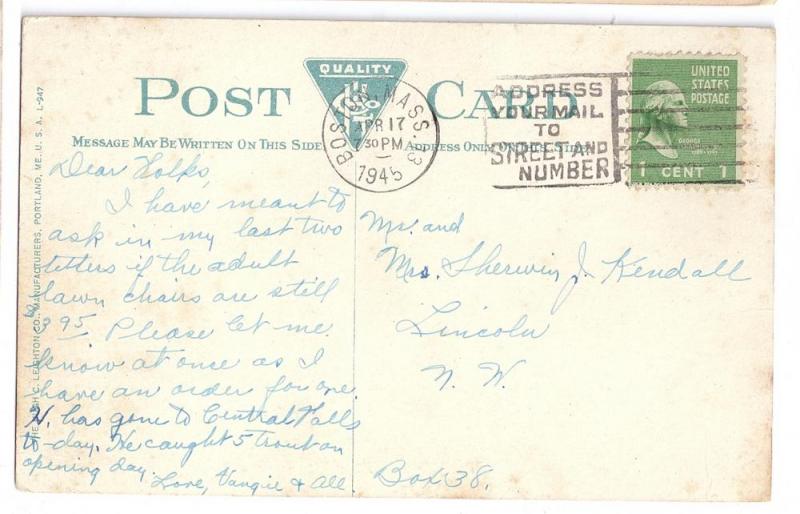 POST CARD
QUALITY
MESSAGE MAY BE WRITTEN ON THIS SIDE
ADDRESS ONLY ON THIS SIDE
BOSTON, MASS. 3
APR 17
30 PM
1945
ADDRESS
YOUR MAIL
TO
STREET AND
NUMBER
UNITED
STATES
POSTAGE
GEORGE
1 CENT 1
THE HUGH C. LEIGHTON CO., MANUFACTURERS, PORTLAND, ME. U. S. A. L-947
Dear Folks,
I have meant to
ask in my last two
letters if the adult
lawn chairs are still
$3 95. Please let me
know at once as I
have an order for one.
H. has gone to Central Falls
to-day. He caught 5 trout on
opening day.
Love, Vangie & All.
Mr. and
Mrs. Sherwin J. Kendall
Lincoln
N. H.
Box 38.